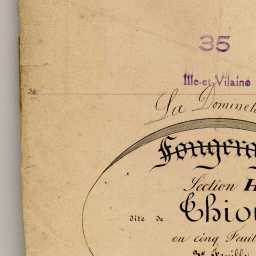 35
Ille-et-Vilaine
La Dominel
Fougera
Section H
dite de Thiou
en cinq Feuil
3e Feuille